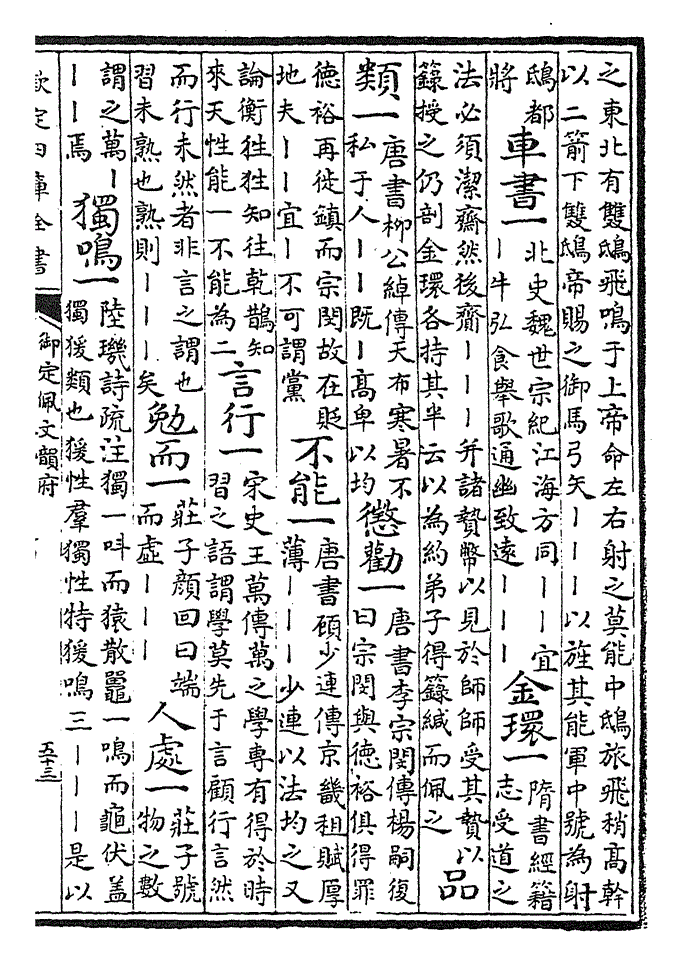 之東北有雙鴟飛鳴于上帝命左右射之莫能中鴟旅飛稍高幹
以二箭下雙鴟帝賜之御馬弓矢丨丨丨以旌其能軍中號為射
鴟都
將
車書一
北史魏世宗紀江海方同丨丨宜
丨牛弘食舉歌通幽致遠丨丨丨
金環一
隋書經籍
志受道之
法必須潔齋然後齎丨丨丨并諸贄幣以見於師師受其贄以
籙授之仍剖金環各持其半云以為約弟子得籙緘而佩之
品
類一
唐書柳公綽傳天布寒暑不
私于人丨丨既丨高卑以均
懲勸一
唐書李宗閔傳楊嗣復
曰宗閔與德裕俱得罪
德裕再徙鎮而宗閔故在貶
地夫丨丨宜丨不可謂黨
不能一
唐書顧少連傳京畿租賦厚
薄丨丨丨少連以法均之又
論衡狌狌知往乾鵲知
來天性能一不能為二
言行一
宋史王萬傳萬之學專有得於時
習之語謂學莫先于言顧行言然
而行未然者非言之謂也
習未熟也熟則丨丨丨矣
勉而一
莊子顏回曰端
而虛丨丨丨
人處一
莊子號
物之數
謂之萬丨
丨丨焉
獨鳴一
陸璣詩疏注獨一呌而猿散鼉一鳴而龜伏盖
獨猨類也猨性羣獨性特猨鳴三丨丨丨是以
欽定四庫全書
御定佩文韻府
五十三